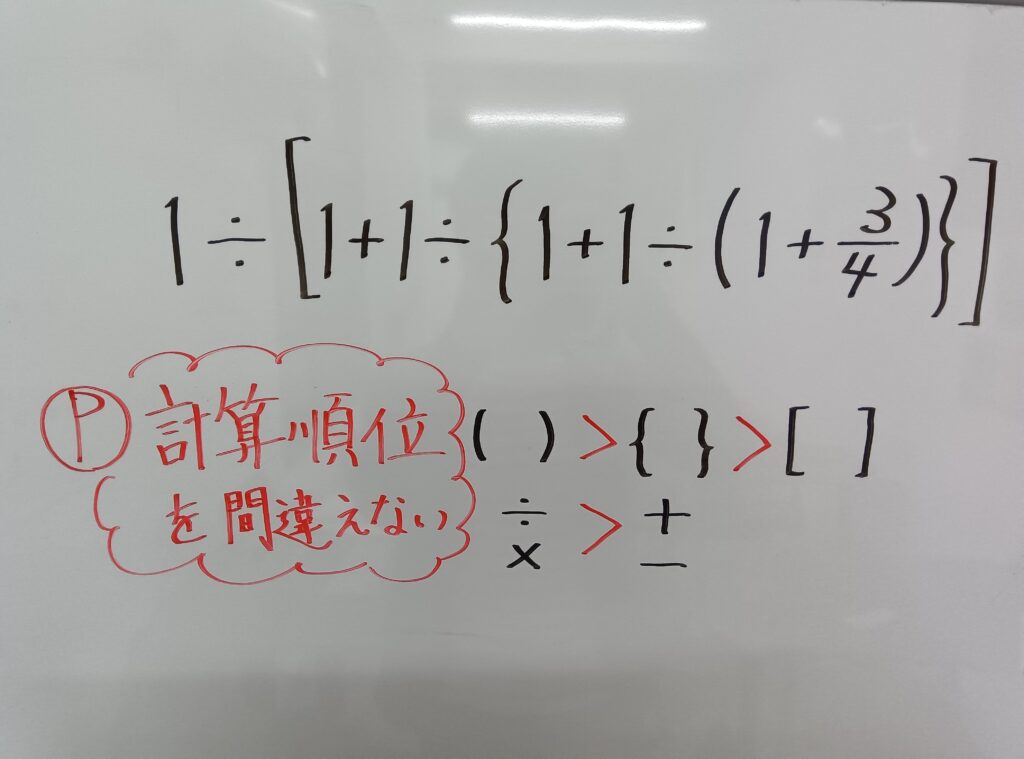 1÷[1+1÷{1+1÷(1+3/4)}]
Ⓟ 計算順位 ( ) > { } > [ ]
を間違えない ÷ > +
× −